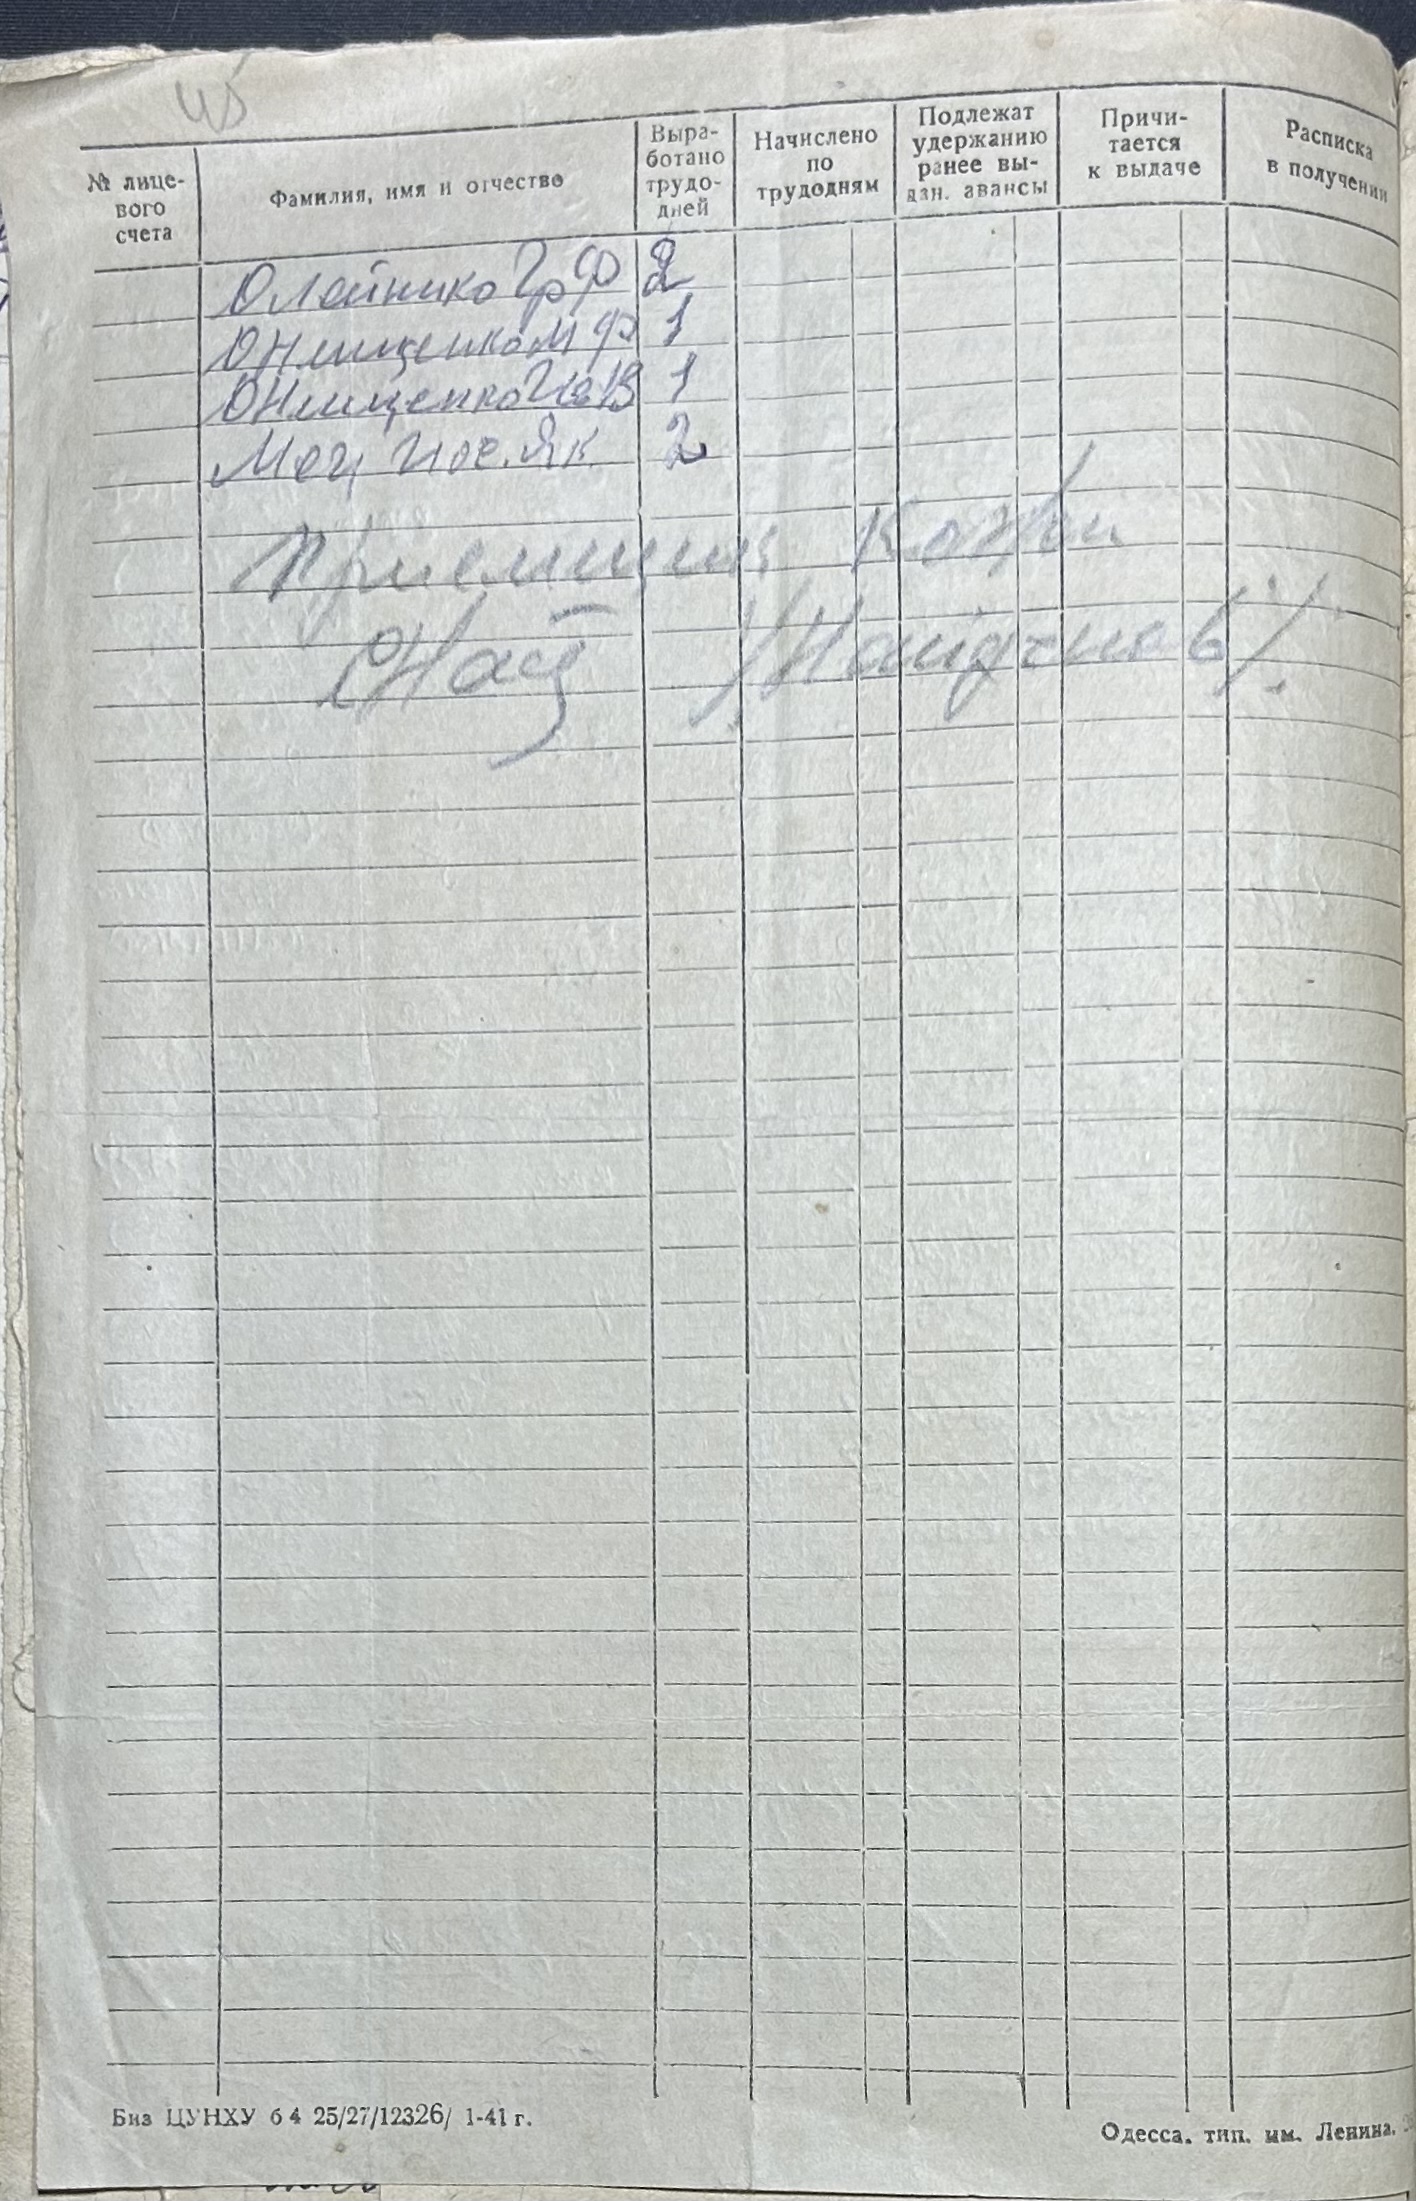 № лице-
вого
счета
Фамилия, имя и отчество
Выра-
ботано
трудо-
дней
Начислено
по
трудодням
Подлежат
удержанию
ранее вы-
дан. авансы
Причи-
тается
к выдаче
Расписка
в получении
Олейнико Гр Ф 2
Онищенко М Ф 1
Онищенко В 1
Моц Иос. Як. 2
Приемщик Кожи
/Найденов/
Биз ЦУНХУ б 4 25/27/12326/ 1-41 г.
Одесса. тип. им. Ленина.